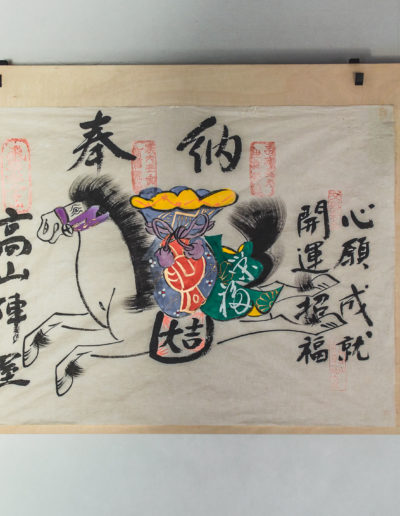 奉納
心願成就
開運招福
大吉
高山陣屋